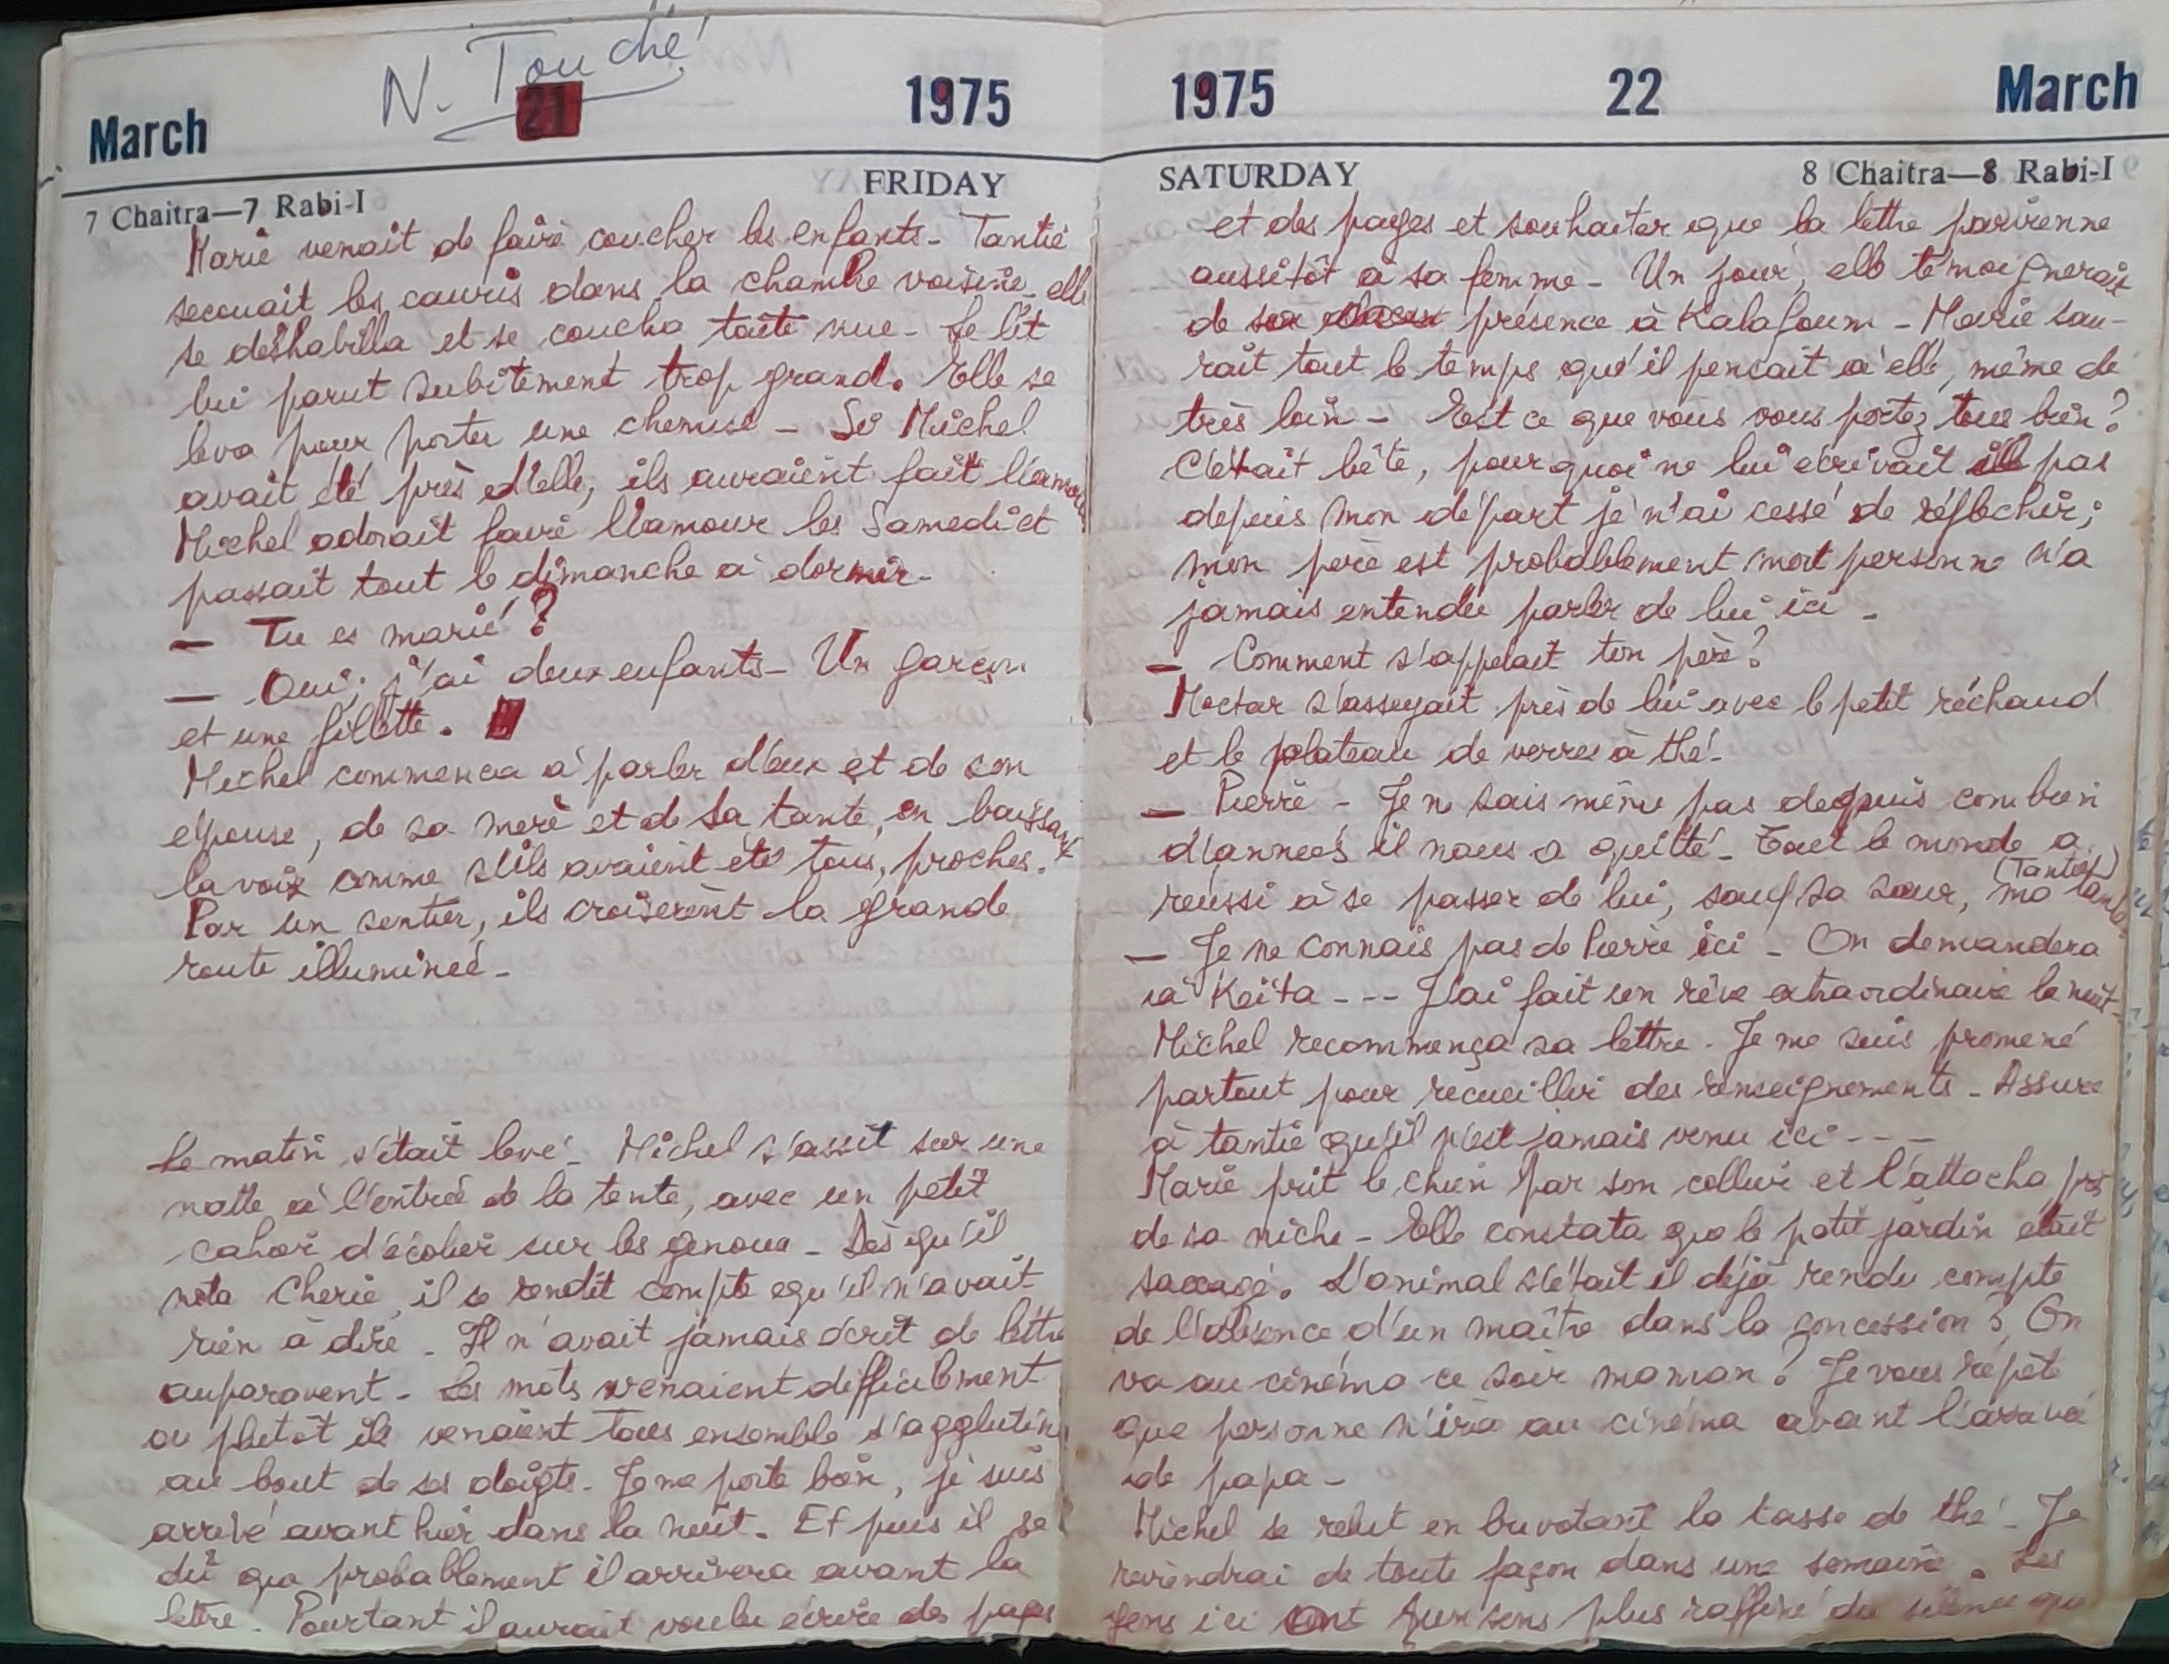 N. Touché
March 21 1975
7 Chaitra—7 Rabi-I FRIDAY
Marie venait de faire coucher les enfants - Tantie
secouait les cauris dans la chambre voisine - elle
se déshabilla et se coucha toute nue - Le lit
lui parut subitement trop grand. Elle se
leva pour porter une chemise - Si Michel
avait été près d'elle, ils auraient fait l'amour
Michel adorait faire l'amour les Samedi et
passait tout le dimanche à dormir -
- Tu es marié ?
- Oui, j'ai deux enfants - Un garçon
et une fillette.
Michel commença à parler d'eux et de son
épouse, de sa mère et de sa tante, en baissant
la voix comme s'ils avaient été tous, proches.
Par un sentier, ils croisèrent la grande
route illuminée -
Le matin s'était levé - Michel s'assit sur une
natte à l'entrée de la tente, avec un petit
cahier d'écolier sur les genoux - Dès qu'il
nota Cherie, il se rendit compte qu'il n'avait
rien à dire - Il n'avait jamais écrit de lettre
auparavent - Les mots venaient difficilement
ou plutôt ils venaient tous ensemble s'agglutiner
au bout de ses doigts - Je me porte bien, je suis
arrivé avant hier dans la nuit - Et puis il se
dit que probablement il arrivera avant la
lettre. Pourtant il aurait voulu écrire des pages
1975 22 March
SATURDAY 8 Chaitra—8 Rabi-I
et des pages et souhaiter que la lettre parvienne
aussitôt à sa femme - Un jour, elle témoignerait
de sa présence à Kalafoum - Marie sau-
rait tout le temps qu'il pencait à elle, même de
très loin - Est ce que vous vous portez tous bien ?
C'était bête, pourquoi ne lui écrivait il pas
depuis mon départ je n'ai cessé de réflechir ;
mon père est probablement mort personne n'a
jamais entendu parler de lui ici -
- Comment s'appelait ton père ?
Moctar s'asseyait près de lui avec le petit réchaud
et le plateau de verres à thé -
- Pierre - Je ne sais même pas depuis combien
d'années il nous a quitté - Tout le monde a
réussi à se passer de lui, sauf sa sœur, ma tante (Tantie)
- Je ne connais pas de Pierre ici - On demandera
à Keïta - - - J'ai fait un rêve extraordinaire la nuit -
Michel recommença sa lettre. Je me suis promené
partout pour recueillir des renseignements - Assure
à tantie qu'il n'est jamais venu ici - - -
Marie prit le chien par son collier et l'attacha près
de sa niche - Elle constata que le petit jardin était
saccagé. L'animal s'était il déjà rendu compte
de l'absence d'un maître dans la concession ? On
va au cinéma ce soir maman ? Je vous répète
que personne n'ira au cinéma avant l'arrivée
de papa -
Michel se relut en buvotant la tasse de thé - Je
reviendrai de toute façon dans une semaine. Les
gens ici ont un sens plus raffiné du silence que